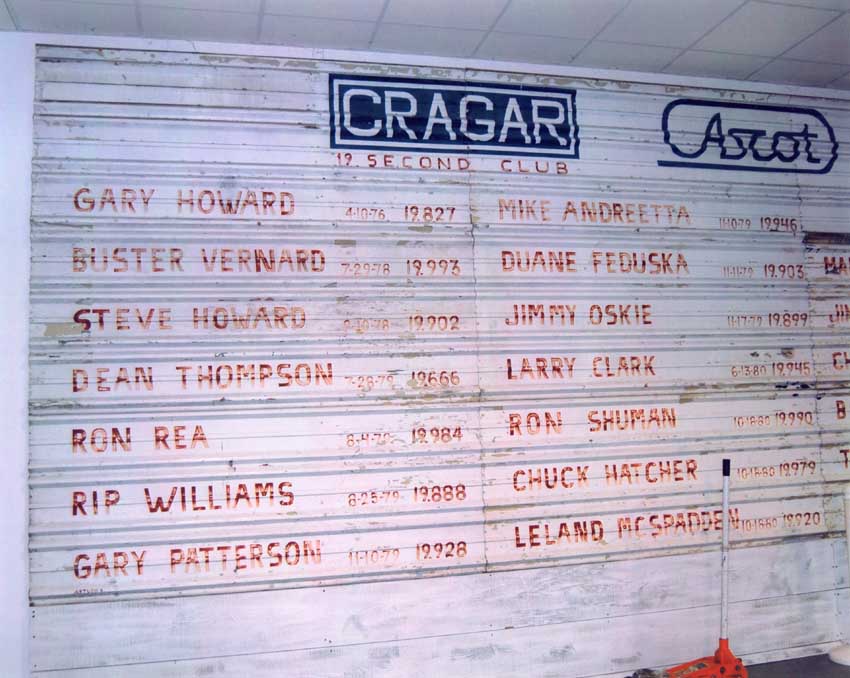 CRAGAR
19 SECOND CLUB
Ascot
GARY HOWARD 4-10-76 19.827
BUSTER VERNARD 7-29-78 19.993
STEVE HOWARD 19.902
DEAN THOMPSON 7-28-79 19.666
RON REA 8-4-79 19.984
RIP WILLIAMS 8-25-79 19.888
GARY PATTERSON 11-10-79 19.928
MIKE ANDREETTA 11-10-79 19.946
DUANE FEDUSKA 11-11-79 19.903
JIMMY OSKIE 11-17-79 19.899
LARRY CLARK 6-13-80 19.945
RON SHUMAN 10-18-80 19.990
CHUCK HATCHER 10-18-80 19.979
LELAND MCSPADDEN 10-18-80 19.920